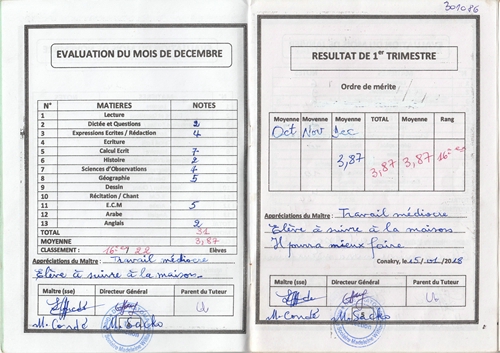 301086
EVALUATION DU MOIS DE DECEMBRE
N° MATIERES NOTES
1 Lecture
2 Dictée et Questions 2
3 Expressions Ecrites / Rédaction 4
4 Ecriture
5 Calcul Ecrit 7
6 Histoire 2
7 Sciences d'Observations 7
8 Géographie 5
9 Dessin
10 Récitation / Chant
11 E.C.M 5
12 Arabe
13 Anglais 2
TOTAL 31
MOYENNE 3,87
CLASSEMENT : 16e / 22 Elèves
Appréciations du Maître : Travail médiocre
Elève à suivre à la maison.
Maître (sse) Directeur Général Parent du Tuteur
M. Condé M. Sacko
RESULTAT DE 1er TRIMESTRE
Ordre de mérite
Moyenne Moyenne Moyenne TOTAL Moyenne Rang
Oct Nov Dec
3,87 3,87 3,87 16e
Appréciations du Maître : Travail médiocre
Elève à suivre à la maison
Il pourra mieux faire
Conakry, le 15/01/2018
Maître (sse) Directeur Général Parent du Tuteur
M. Condé M. Sacko